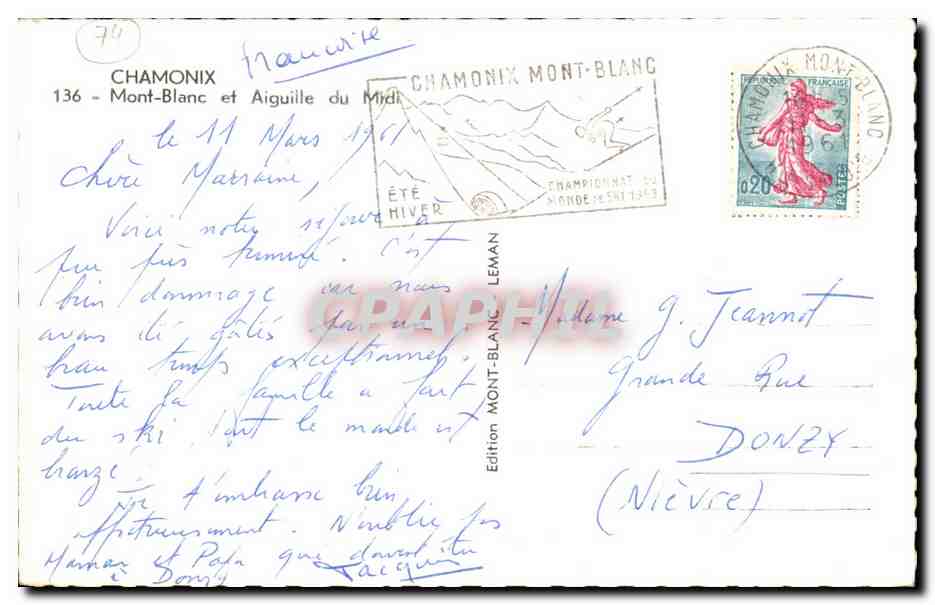 74
Françoise
CHAMONIX
136 - Mont-Blanc et Aiguille du Midi
CHAMONIX MONT-BLANC
ÉTÉ
HIVER
CHAMPIONNAT DU
MONDE DE SKI 1963
CHAMONIX MONT-BLANC
REPUBLIQUE FRANÇAISE
0,20
POSTES
le 11 Mars 1961
Chère Marraine,
Voici notre séjour à
peu près terminé. C'est
bien dommage car nous
avons été gâtés par un
beau temps exceptionnel.
Toute la famille a fait
du ski. Tout le monde est
bronzé.
t'embrasse bien
affectueusement. N'oublie pas
Maman et Papa qui doivent être
à Donzy Jacques
Edition MONT-BLANC LEMAN
Madame G. Jeannot
Grande Rue
DONZY
(Nièvre)
CPARAMA